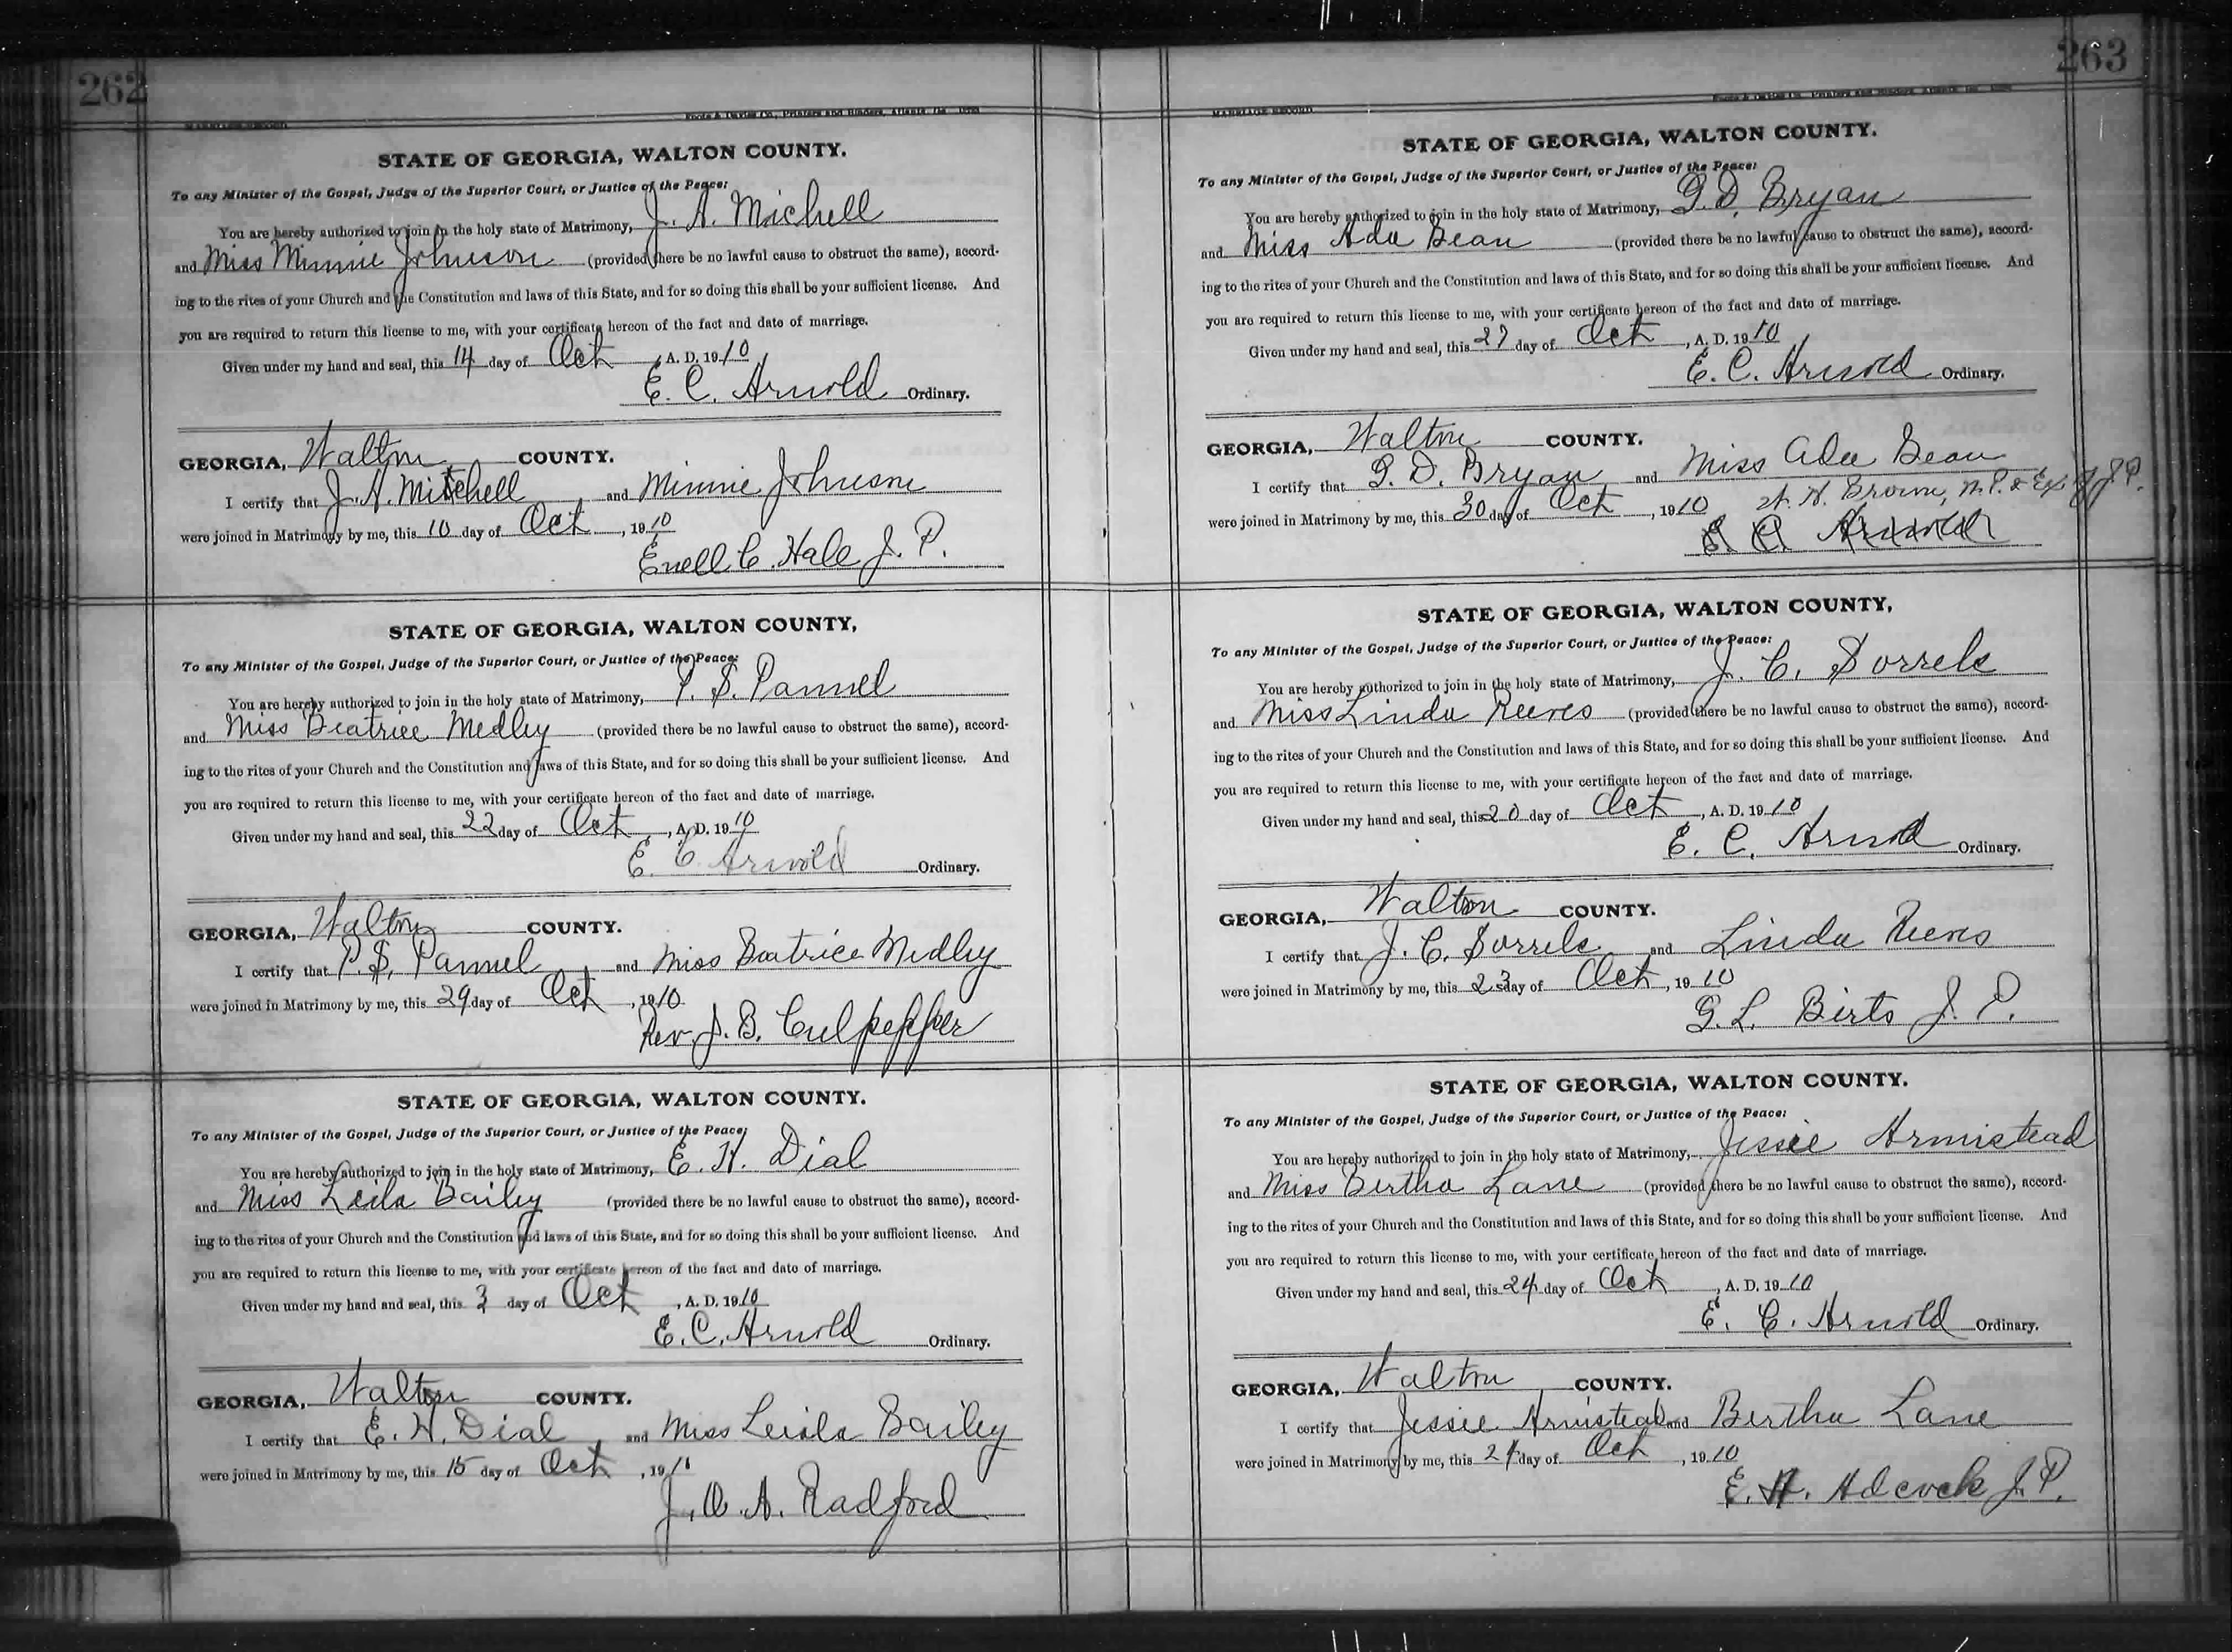 262
MARRIAGE RECORD
Foote & Davies Co., Printers and Binders, Atlanta, Ga.
STATE OF GEORGIA, WALTON COUNTY.
To any Minister of the Gospel, Judge of the Superior Court, or Justice of the Peace:
You are hereby authorized to join in the holy state of Matrimony, J. A. Michell
and Miss Minnie Johnson (provided there be no lawful cause to obstruct the same), accord-
ing to the rites of your Church and the Constitution and laws of this State, and for so doing this shall be your sufficient license. And
you are required to return this license to me, with your certificate hereon of the fact and date of marriage.
Given under my hand and seal, this 14 day of Oct, A. D. 1910
E. C. Arnold Ordinary.
GEORGIA, Walton COUNTY.
I certify that J. A. Mitchell and Minnie Johnson
were joined in Matrimony by me, this 10 day of Oct, 1910
Enell C. Hale J. P.
STATE OF GEORGIA, WALTON COUNTY,
To any Minister of the Gospel, Judge of the Superior Court, or Justice of the Peace:
You are hereby authorized to join in the holy state of Matrimony, P. S. Pannel
and Miss Beatrice Medley (provided there be no lawful cause to obstruct the same), accord-
ing to the rites of your Church and the Constitution and laws of this State, and for so doing this shall be your sufficient license. And
you are required to return this license to me, with your certificate hereon of the fact and date of marriage.
Given under my hand and seal, this 22 day of Oct, A. D. 1910
E. C. Arnold Ordinary.
GEORGIA, Walton COUNTY.
I certify that P. S. Pannel and Miss Beatrice Medley
were joined in Matrimony by me, this 29 day of Oct, 1910
Rev. J. B. Culpepper
STATE OF GEORGIA, WALTON COUNTY.
To any Minister of the Gospel, Judge of the Superior Court, or Justice of the Peace:
You are hereby authorized to join in the holy state of Matrimony, E. H. Dial
and Miss Leila Bailey (provided there be no lawful cause to obstruct the same), accord-
ing to the rites of your Church and the Constitution and laws of this State, and for so doing this shall be your sufficient license. And
you are required to return this license to me, with your certificate hereon of the fact and date of marriage.
Given under my hand and seal, this 3 day of Oct, A. D. 1910
E. C. Arnold Ordinary.
GEORGIA, Walton COUNTY.
I certify that E. H. Dial and Miss Leiola Bailey
were joined in Matrimony by me, this 15 day of Oct, 19
J. O. A. Radford
263
MARRIAGE RECORD
Foote & Davies Co., Printers and Binders, Atlanta, Ga.
STATE OF GEORGIA, WALTON COUNTY.
To any Minister of the Gospel, Judge of the Superior Court, or Justice of the Peace:
You are hereby authorized to join in the holy state of Matrimony, G. D. Bryan
and Miss Ada Bean (provided there be no lawful cause to obstruct the same), accord-
ing to the rites of your Church and the Constitution and laws of this State, and for so doing this shall be your sufficient license. And
you are required to return this license to me, with your certificate hereon of the fact and date of marriage.
Given under my hand and seal, this 27 day of Oct, A. D. 1910
E. C. Arnold Ordinary.
GEORGIA, Walton COUNTY.
I certify that G. D. Bryan and Miss Ada Bean
were joined in Matrimony by me, this 30 day of Oct, 1910 W. H. Brown, N. P. & Ex. Of J. P.
E. C. Arnold
STATE OF GEORGIA, WALTON COUNTY,
To any Minister of the Gospel, Judge of the Superior Court, or Justice of the Peace:
You are hereby authorized to join in the holy state of Matrimony, J. C. Sorrels
and Miss Linda Reeves (provided there be no lawful cause to obstruct the same), accord-
ing to the rites of your Church and the Constitution and laws of this State, and for so doing this shall be your sufficient license. And
you are required to return this license to me, with your certificate hereon of the fact and date of marriage.
Given under my hand and seal, this 20 day of Oct, A. D. 1910
E. C. Arnold Ordinary.
GEORGIA, Walton COUNTY.
I certify that J. C. Sorrels and Linda Reeves
were joined in Matrimony by me, this 23 day of Oct, 1910
G. L. Birts J. P.
STATE OF GEORGIA, WALTON COUNTY.
To any Minister of the Gospel, Judge of the Superior Court, or Justice of the Peace:
You are hereby authorized to join in the holy state of Matrimony, Jessie Armistead
and Miss Bertha Lane (provided there be no lawful cause to obstruct the same), accord-
ing to the rites of your Church and the Constitution and laws of this State, and for so doing this shall be your sufficient license. And
you are required to return this license to me, with your certificate hereon of the fact and date of marriage.
Given under my hand and seal, this 24 day of Oct, A. D. 1910
E. C. Arnold Ordinary.
GEORGIA, Walton COUNTY.
I certify that Jessie Armistead and Bertha Lane
were joined in Matrimony by me, this 24 day of Oct, 1910
E. H. Adcock J. P.